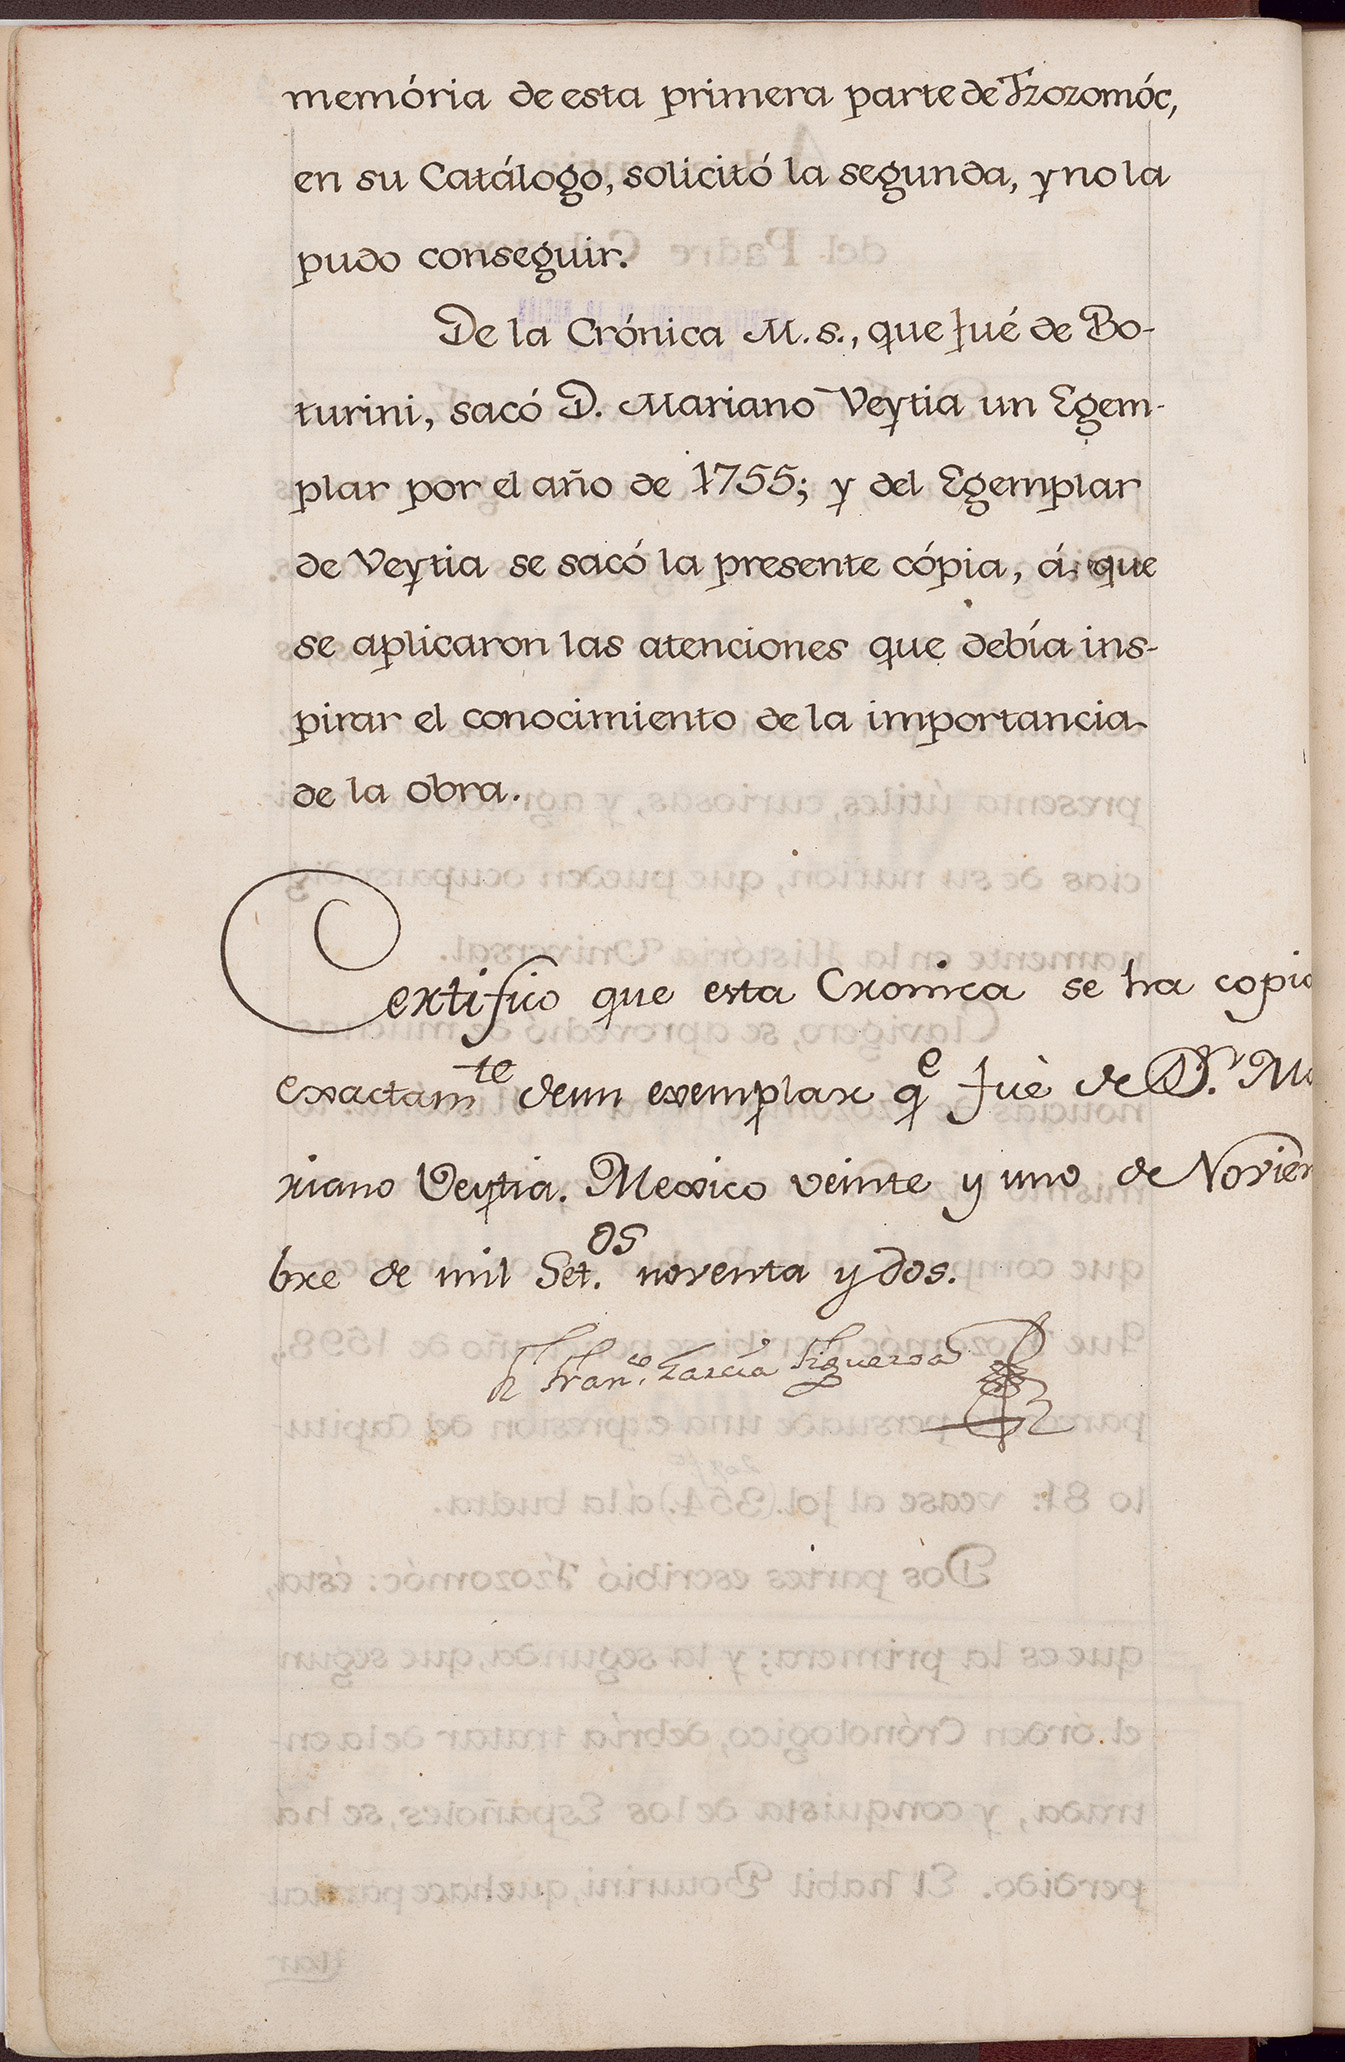 memória de esta primera parte de Tzozomóc,
en su Catálogo, solicitó la segunda, y no la
pudo conseguir.
De la Crónica M.s., que fué de Bo-
turini, sacó D. Mariano Veytia un Egem-
plar por el año de 1755; y del Egemplar
de Veytia se sacó la presente cópia, á que
se aplicaron las atenciones que debía ins-
pirar el conocimiento de la importancia
de la obra.
Certifico que esta Cronica se ha copia
exactamte de un exemplar qe fuè de Dn. Ma
riano Veytia. Mexico veinte y uno de Noviem
bre de mil Setos. noventa y dos.
Fr. Franco. Garcia Figueroa